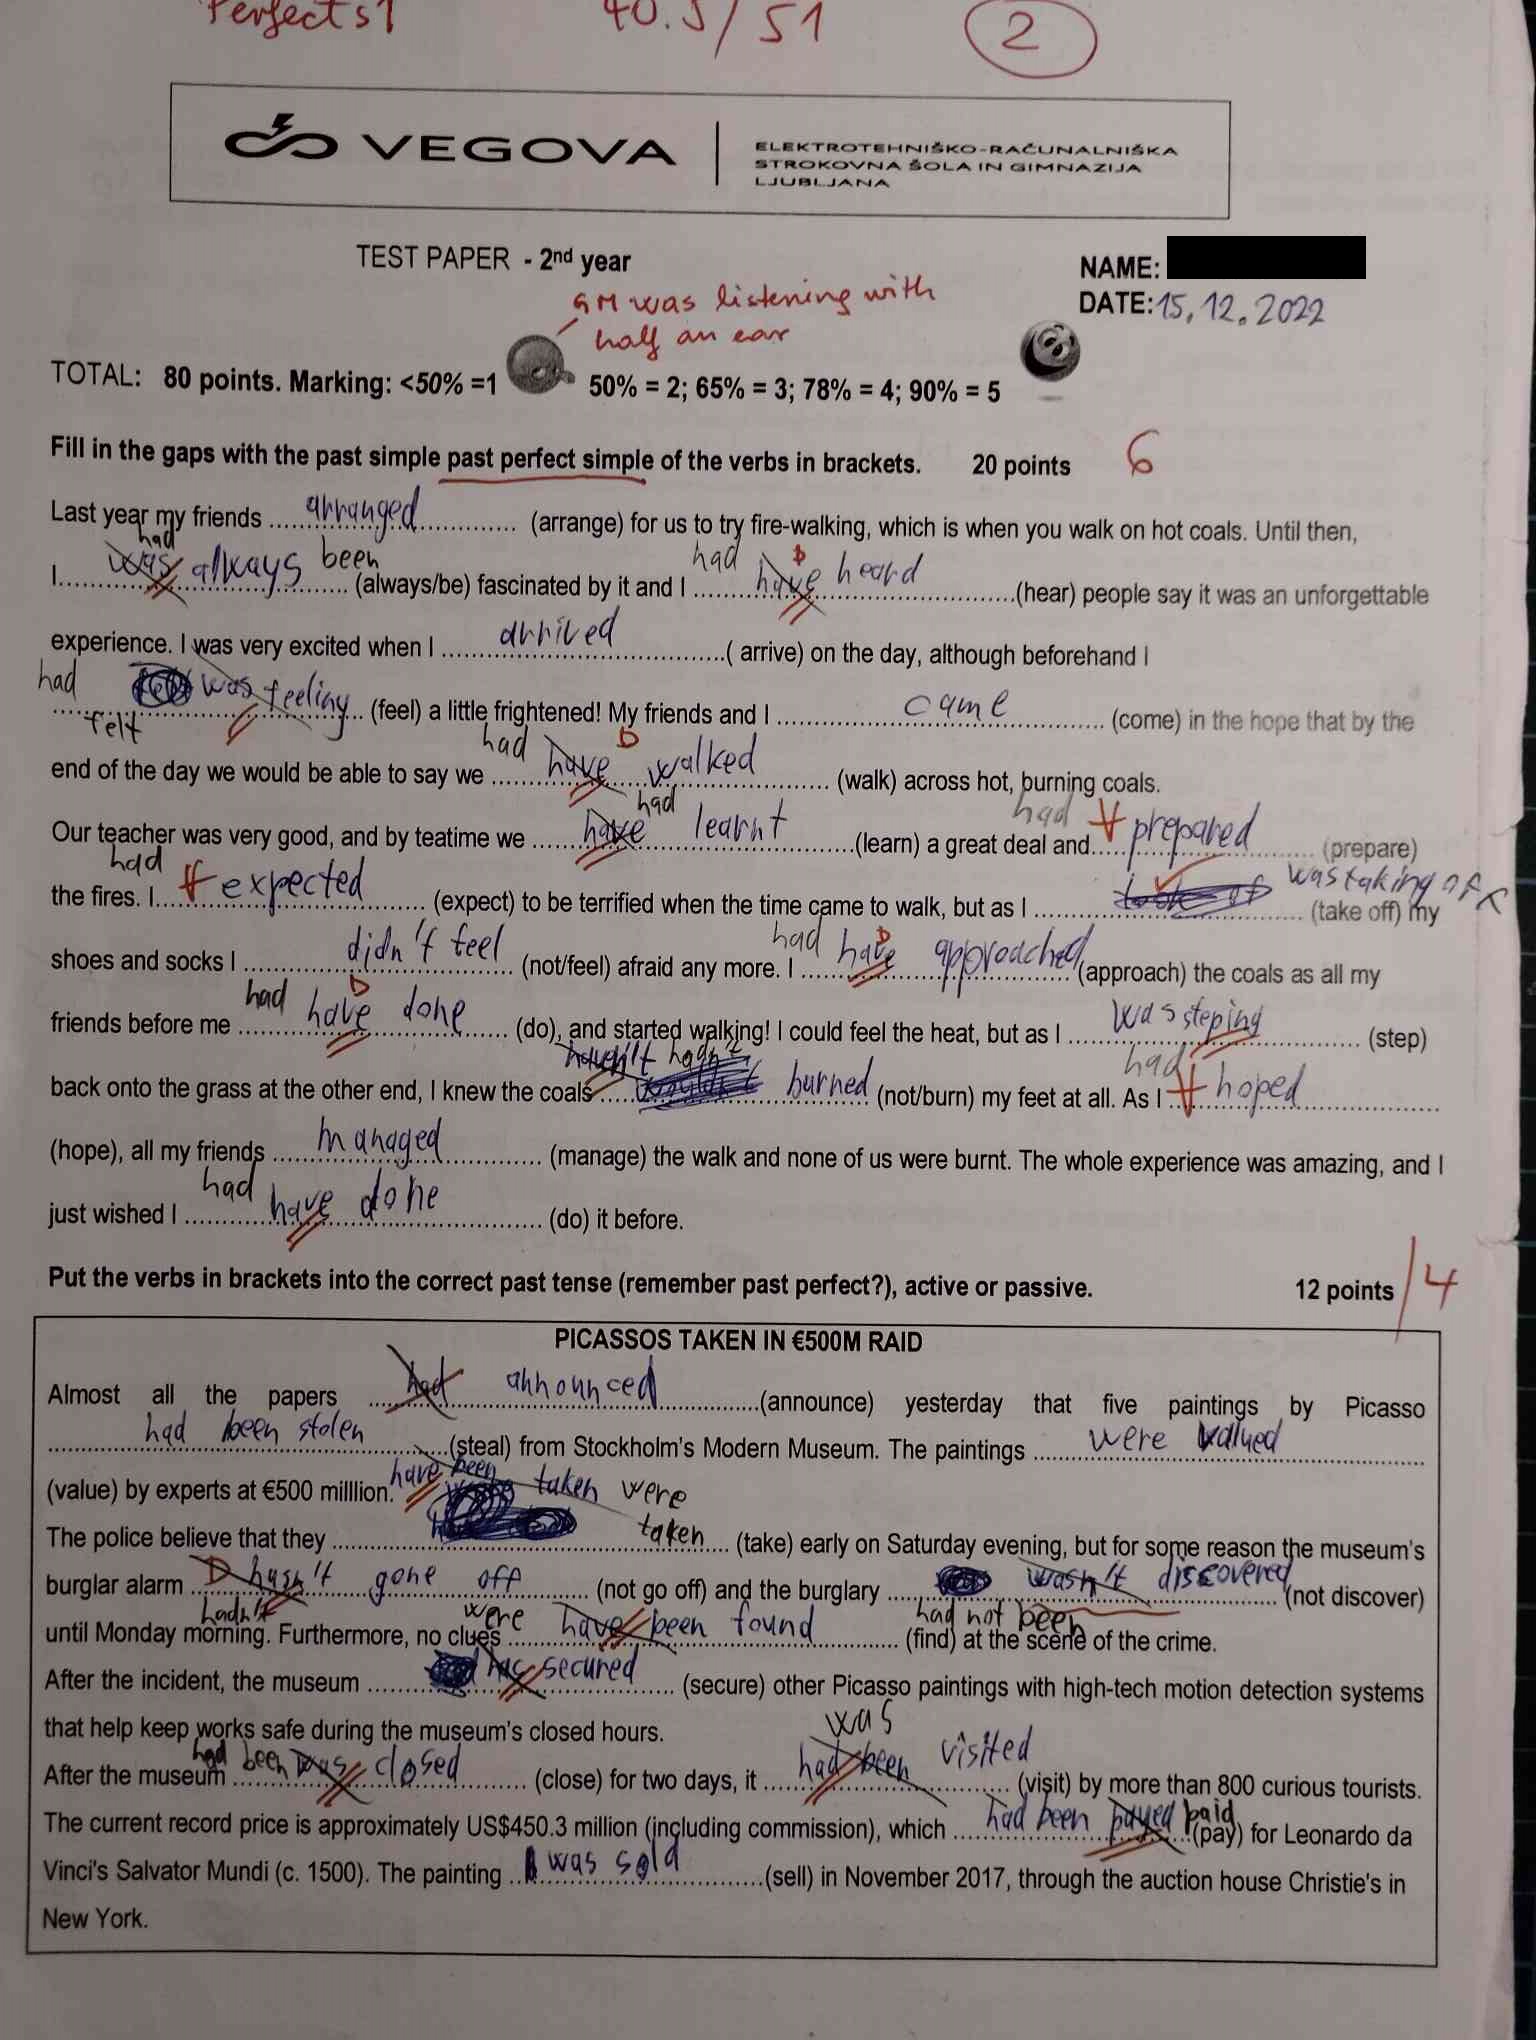 Perfects1 40.5/51 2
VEGOVA
ELEKTROTEHNIŠKO-RAČUNALNIŠKA
STROKOVNA ŠOLA IN GIMNAZIJA
LJUBLJANA
TEST PAPER - 2nd year
NAME:
DATE: 15.12.2022
GM was listening with
half an ear
TOTAL: 80 points. Marking: <50% =1 50% = 2; 65% = 3; 78% = 4; 90% = 5
Fill in the gaps with the past simple past perfect simple of the verbs in brackets. 20 points 6
Last year my friends arranged (arrange) for us to try fire-walking, which is when you walk on hot coals. Until then,
had had
I was always been (always/be) fascinated by it and I have heard (hear) people say it was an unforgettable
experience. I was very excited when I arrived ( arrive) on the day, although beforehand I
had
was feeling felt (feel) a little frightened! My friends and I came (come) in the hope that by the
had
end of the day we would be able to say we have walked (walk) across hot, burning coals.
had had
Our teacher was very good, and by teatime we have learnt (learn) a great deal and prepared (prepare)
had
the fires. I expected (expect) to be terrified when the time came to walk, but as I was taking off (take off) my
had
shoes and socks I didn't feel (not/feel) afraid any more. I have approached (approach) the coals as all my
had
friends before me have done (do), and started walking! I could feel the heat, but as I was steping (step)
haven't hadn't had
back onto the grass at the other end, I knew the coals burned (not/burn) my feet at all. As I hoped
(hope), all my friends managed (manage) the walk and none of us were burnt. The whole experience was amazing, and I
had
just wished I have done (do) it before.
Put the verbs in brackets into the correct past tense (remember past perfect?), active or passive. 12 points /4
PICASSOS TAKEN IN €500M RAID
Almost all the papers had announced (announce) yesterday that five paintings by Picasso
had been stolen (steal) from Stockholm's Modern Museum. The paintings were valued
(value) by experts at €500 milllion.
have been taken were
The police believe that they taken (take) early on Saturday evening, but for some reason the museum's
burglar alarm hasn't gone off (not go off) and the burglary wasn't discovered (not discover)
hadn't were had not been
until Monday morning. Furthermore, no clues have been found (find) at the scene of the crime.
After the incident, the museum has secured (secure) other Picasso paintings with high-tech motion detection systems
that help keep works safe during the museum's closed hours.
had been was
After the museum was closed (close) for two days, it had been visited (visit) by more than 800 curious tourists.
The current record price is approximately US$450.3 million (including commission), which had been payed paid (pay) for Leonardo da
Vinci's Salvator Mundi (c. 1500). The painting was sold (sell) in November 2017, through the auction house Christie's in
New York.